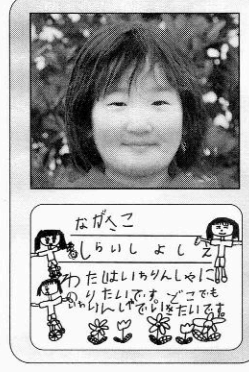 ながへこ
しらいしよしえ
わたしはいちりんしゃに
のりたいです。どこでも
いちりんしゃでいきたいです